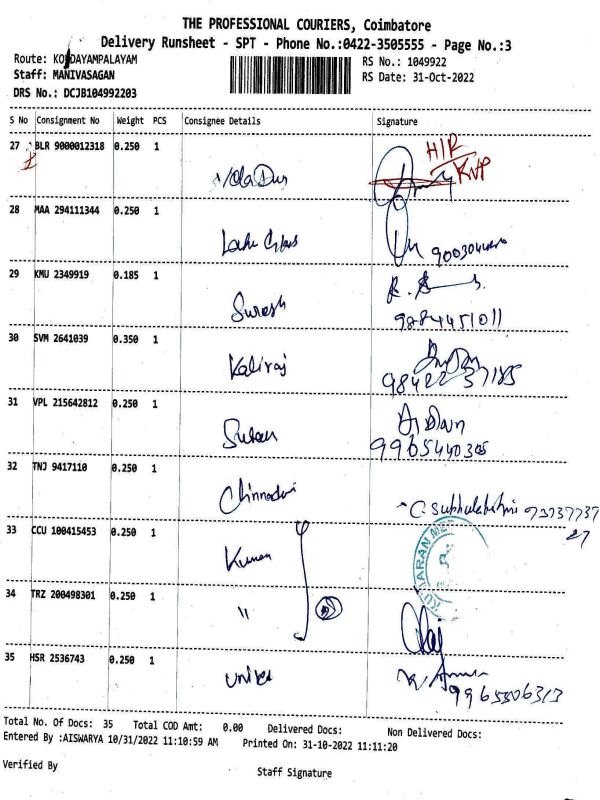 THE PROFESSIONAL COURIERS, Coimbatore
Delivery Runsheet - SPT - Phone No.:0422-3505555 - Page No.:3
Route: KONDAYAMPALAYAM
RS No.: 1049922
Staff: MANIVASAGAN
RS Date: 31-Oct-2022
DRS No.: DCJB104992203
S No Consignment No Weight PCS Consignee Details Signature
27 BLR 9000012318 0.250 1
H/R
KNP
28 MAA 294111344 0.250 1
29 KMU 2349919 0.185 1
Suresh
9884451011
30 SVM 2641039 0.350 1
Kaliraj
98422 37185
31 VPL 215642812 0.250 1
9965440305
32 TNJ 9417110 0.250 1
33 CCU 100415453 0.250 1
Kumar
34 TRZ 200498301 0.250 1
"
35 HSR 2536743 0.250 1
9965506313
Total No. Of Docs: 35 Total COD Amt: 0.00 Delivered Docs: Non Delivered Docs:
Entered By :AISWARYA 10/31/2022 11:10:59 AM Printed On: 31-10-2022 11:11:20
Verified By
Staff Signature